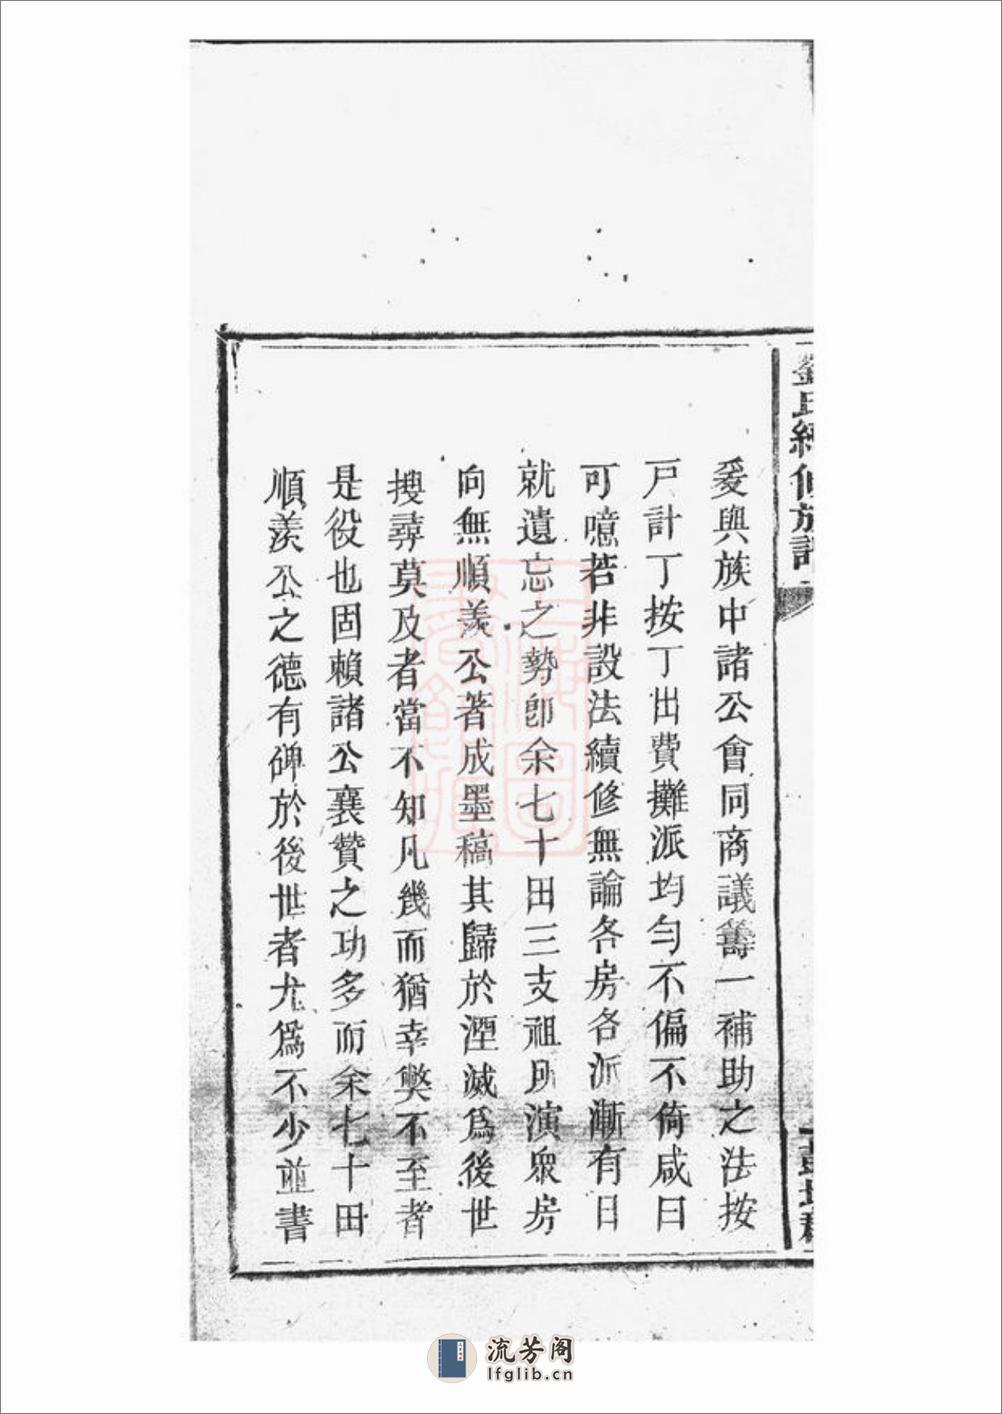 爰與族中諸公會同商議籌一補助之法按
戶計丁按丁出費攤派均勻不偏不倚咸曰
可噫若非設法續修無論各房各派漸有日
就遺忘之勢卽余七十田三支祖所演衆房
向無順羨公著成墨稿其歸於湮滅爲後世
搜尋莫及者當不知凡幾而猶幸獘不至者
是役也固賴諸公襄贊之功多而余七十田
順羨公之德有碑於後世者尤爲不少並書
流芳阁
lfglib.cn